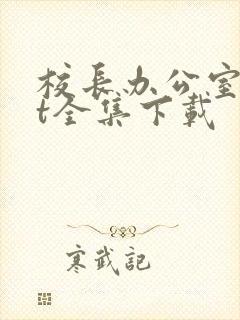 校长办公室
t全集下载
寒武記